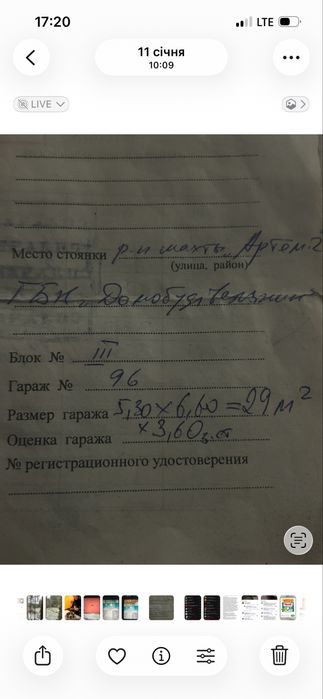 17:20
LTE
11 січня
10:09
LIVE
Место стоянки р-н шахты „Артем-2
(улица, район)
ГБК
Блок № III
Гараж № 96
Размер гаража 5,30×6,60=29 м²
Оценка гаража ×3,60
№ регистрационного удостоверения